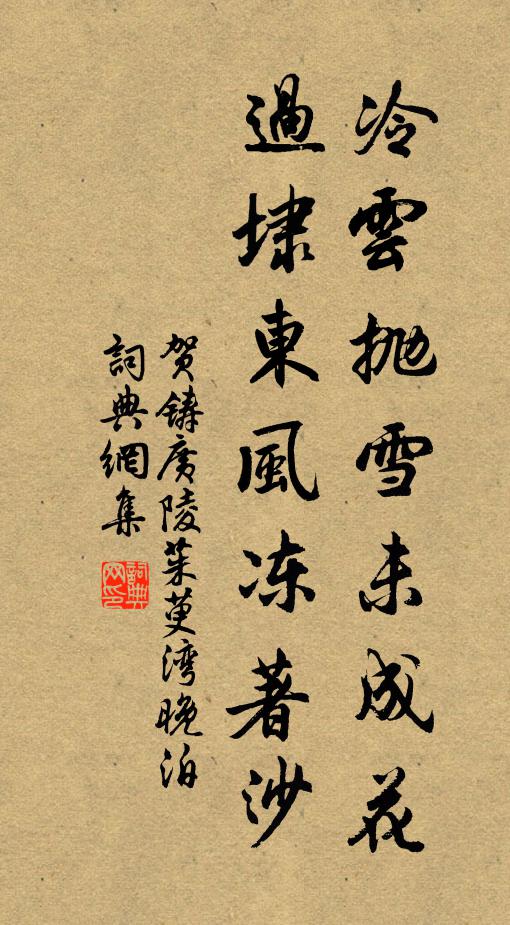 冷雲拋雪未成花
過埭東風冻著沙
贺铸廣陵茱萸湾晚泊
詞典網集
詞典网印